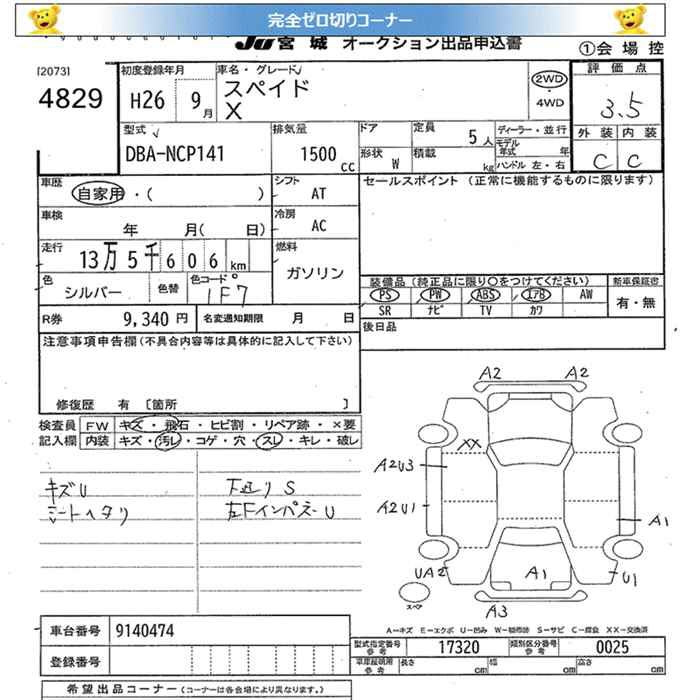 完全ゼロ切りコーナー
JU 宮城 オークション出品申込書
①会場控
[2073]
4829
初度登録年月
H26 9月
車名・グレード
スペイド
X
2WD
・
4WD
評価点
3.5
外装 内装
C C
型式
DBA-NCP141
排気量
1500 cc
ドア
定員 5人
形状 W
積載 kg
ディーラー・並行
モデル年式 年
ハンドル 左・右
車歴
自家用・( )
シフト AT
セールスポイント (正常に機能するものに限ります)
車検 年 月( 日)
冷房 AC
走行 13万5千606km
燃料 ガソリン
色 シルバー
色替
色コード 1F7
装備品 (純正品に限り○をつけてください)
新車保証書
PS PW ABS エアB AW
SR ナビ TV カワ
有・無
R券 9,340円
名変通知期限 月 日
後日品
注意事項申告欄(不具合内容等は具体的に記入して下さい)
修復歴 有 [箇所 ]
検査員
記入欄
FW キズ・飛石・ヒビ割・リペア跡・×要
内装 キズ・汚レ・コゲ・穴・スレ・キレ・破レ
キズU
シートヘタリ
下廻りS
左Fインパネ-U
A2 A2
XX
A2U3
A2U1
A1
UA2
A1
U1
A3
スペア
A-キズ E-エクボ U-凹み W-補修跡 S-サビ C-腐食 XX-交換済
車台番号 9140474
登録番号
型式指定番号 参考 17320
類別区分番号 参考 0025
参考 長さ cm 幅 cm 高さ cm
希望出品コーナー (コーナーは各会場により異なります。)